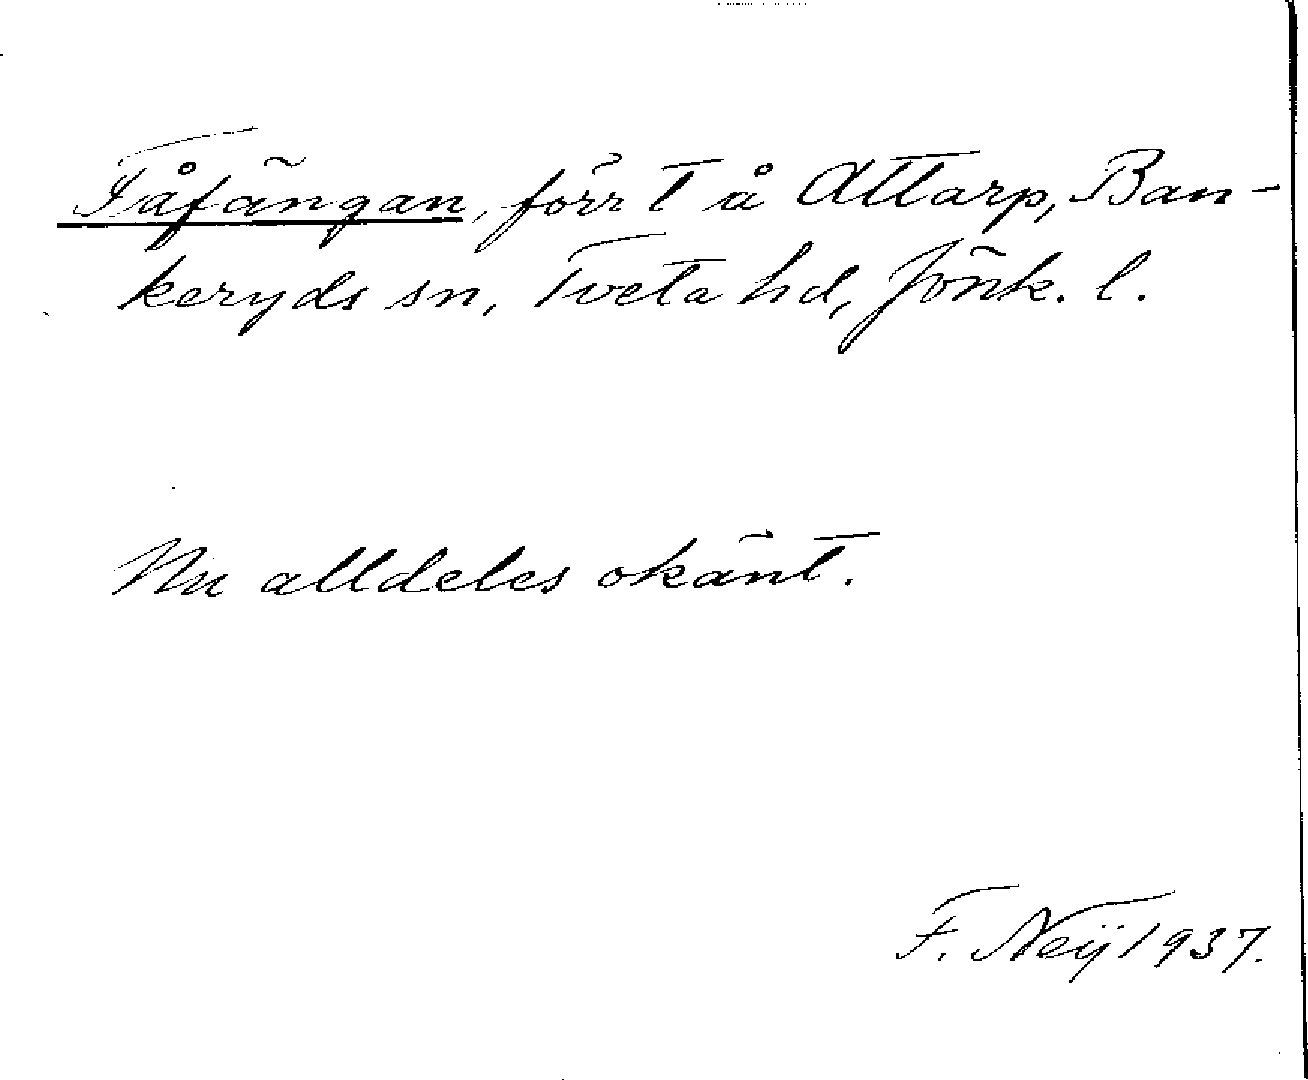 Fåfängan, förr T å Attarp, Ban-
keryds sn, Tveta hd, Jönk. l.
Nu alldeles okänt.
F. Neij 1937.